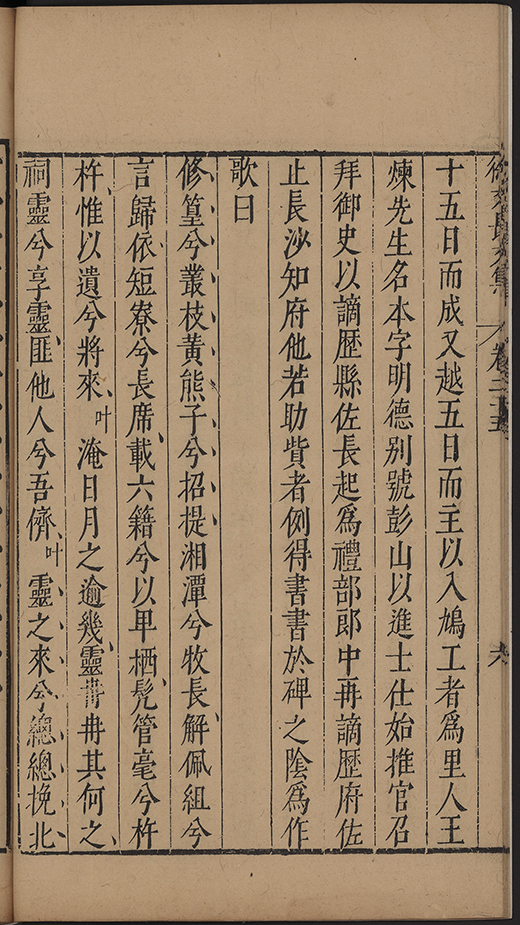 徐文長文集 卷二十五 六
十五日而成又越五日而主以入鳩工者爲里人王
煉先生名本字明德别號彭山以進士仕始推官召
拜御史以謫歴縣佐長起爲禮部郎中再謫歴府佐
止長沙知府他若助貲者例得書書於碑之陰爲作
歌曰
修篁兮叢枝黄熊子兮招提湘潭兮牧長解佩組兮
言歸依短寮兮長席載六籍兮以卑栖髠管毫兮杵
杵惟以遺兮將來叶淹日月之逾幾靈冉冉其何之
祠靈兮享靈匪他人兮吾儕叶靈之來兮總總挽北